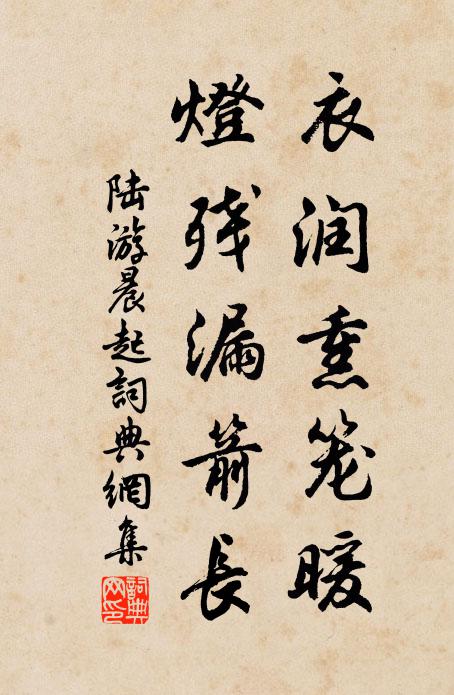 衣润熏笼暖
燈残漏箭長
陆游晨起詞典網集
詞典